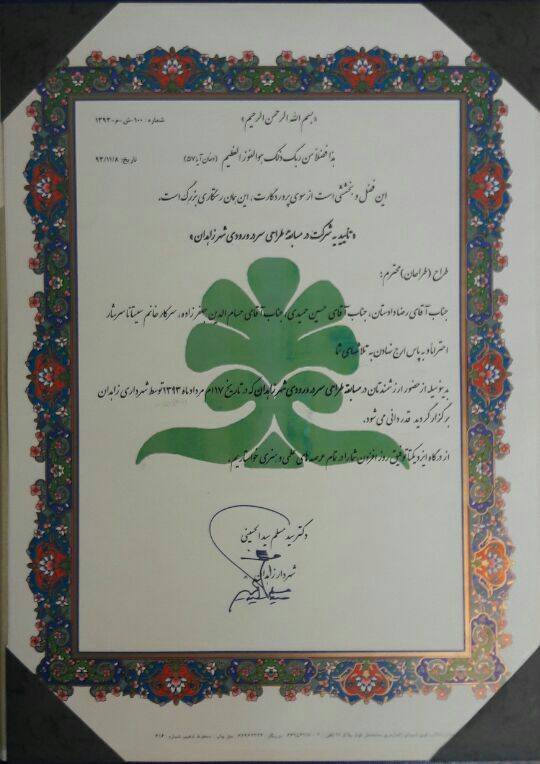 «بسم الله الرحمن الرحیم»
شماره: ۱۰۰-ش-م-۱۳۹۳
هذا فضلاً من ربک ذلک هو الفوز العظیم (دخان آیه ۵۷)
تاریخ: ۹۳/۱۱/۸
این فضل و بخششی است از سوی پروردگارت، این همان رستگاری بزرگ است.
«تأییدیه شرکت در مسابقه طراحی سردر ورودی شهر زاهدان»
طراح (طراحان) محترم:
جناب آقای رضا دادستان، جناب آقای حسین حمیدی، جناب آقای حسام الدین جعفرزاده، سرکار خانم سرشار
احتراماً به پاس ارج نهادن به تلاشهای شما
بدینوسیله از حضور ارزشمندتان در مسابقه طراحی سردر ورودی شهر زاهدان که در تاریخ ۱۷ام مرداد ماه ۱۳۹۳ توسط شهرداری زاهدان
برگزار گردید قدردانی می شود.
از درگاه ایزد یکتا توفیق روز افزون شما را در تمام عرصه های علمی و هنری خواستاریم.
دکتر سید مسلم سید الحسینی
شهردار زاهدان